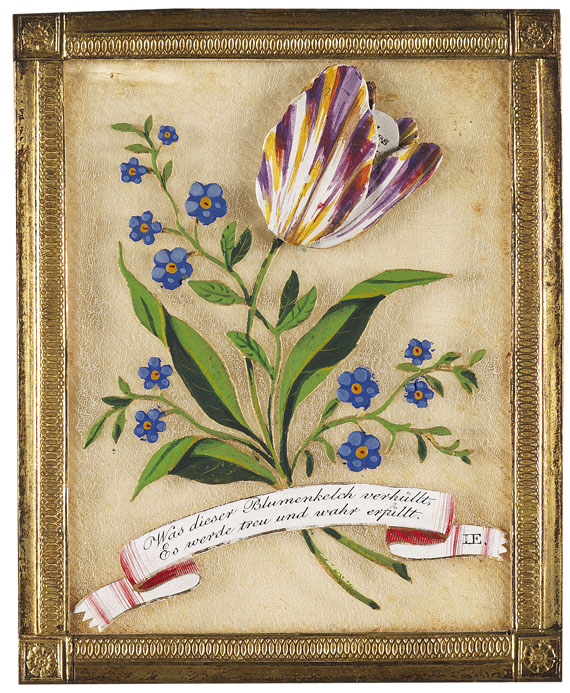 Was dieser Blumenkelch verhüllt,
Es werde treu und wahr erfüllt.
I.E.